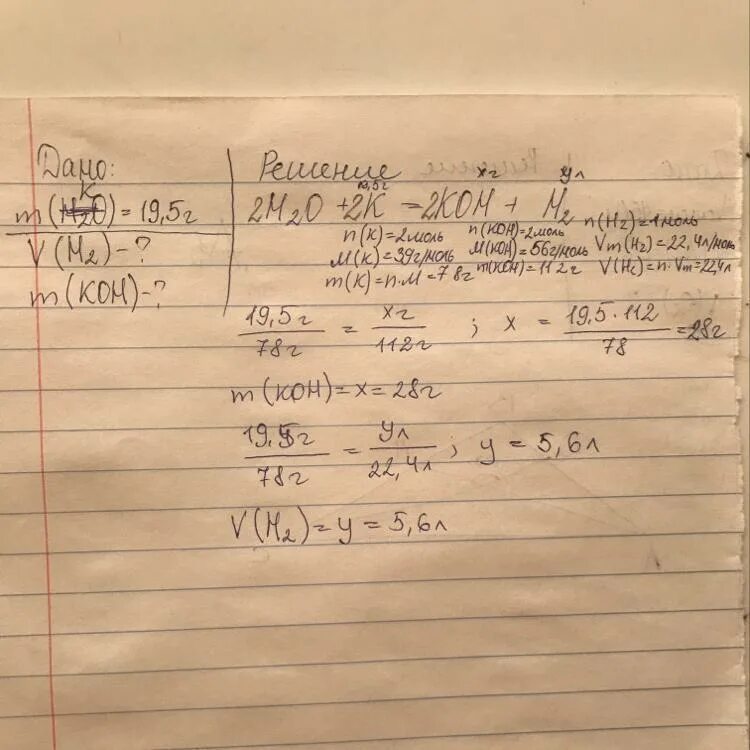 Дано:
m(K) = 19,5г
V(H₂) - ?
m(KOH) - ?
Решение
19,5г хг ул
2H₂O + 2K = 2KOH + H₂
n(K) = 2моль
M(K) = 39г/моль
m(K) = n·M = 78г
n(KOH) = 2моль
M(KOH) = 56г/моль
m(KOH) = 112г
n(H₂) = 1моль
Vm(H₂) = 22,4л/моль
V(H₂) = n·Vm = 22,4л
19,5г/78г = хг/112г ; х = 19,5·112/78 = 28г
m(KOH) = х = 28г
19,5г/78г = ул/22,4л ; у = 5,6л
V(H₂) = у = 5,6л